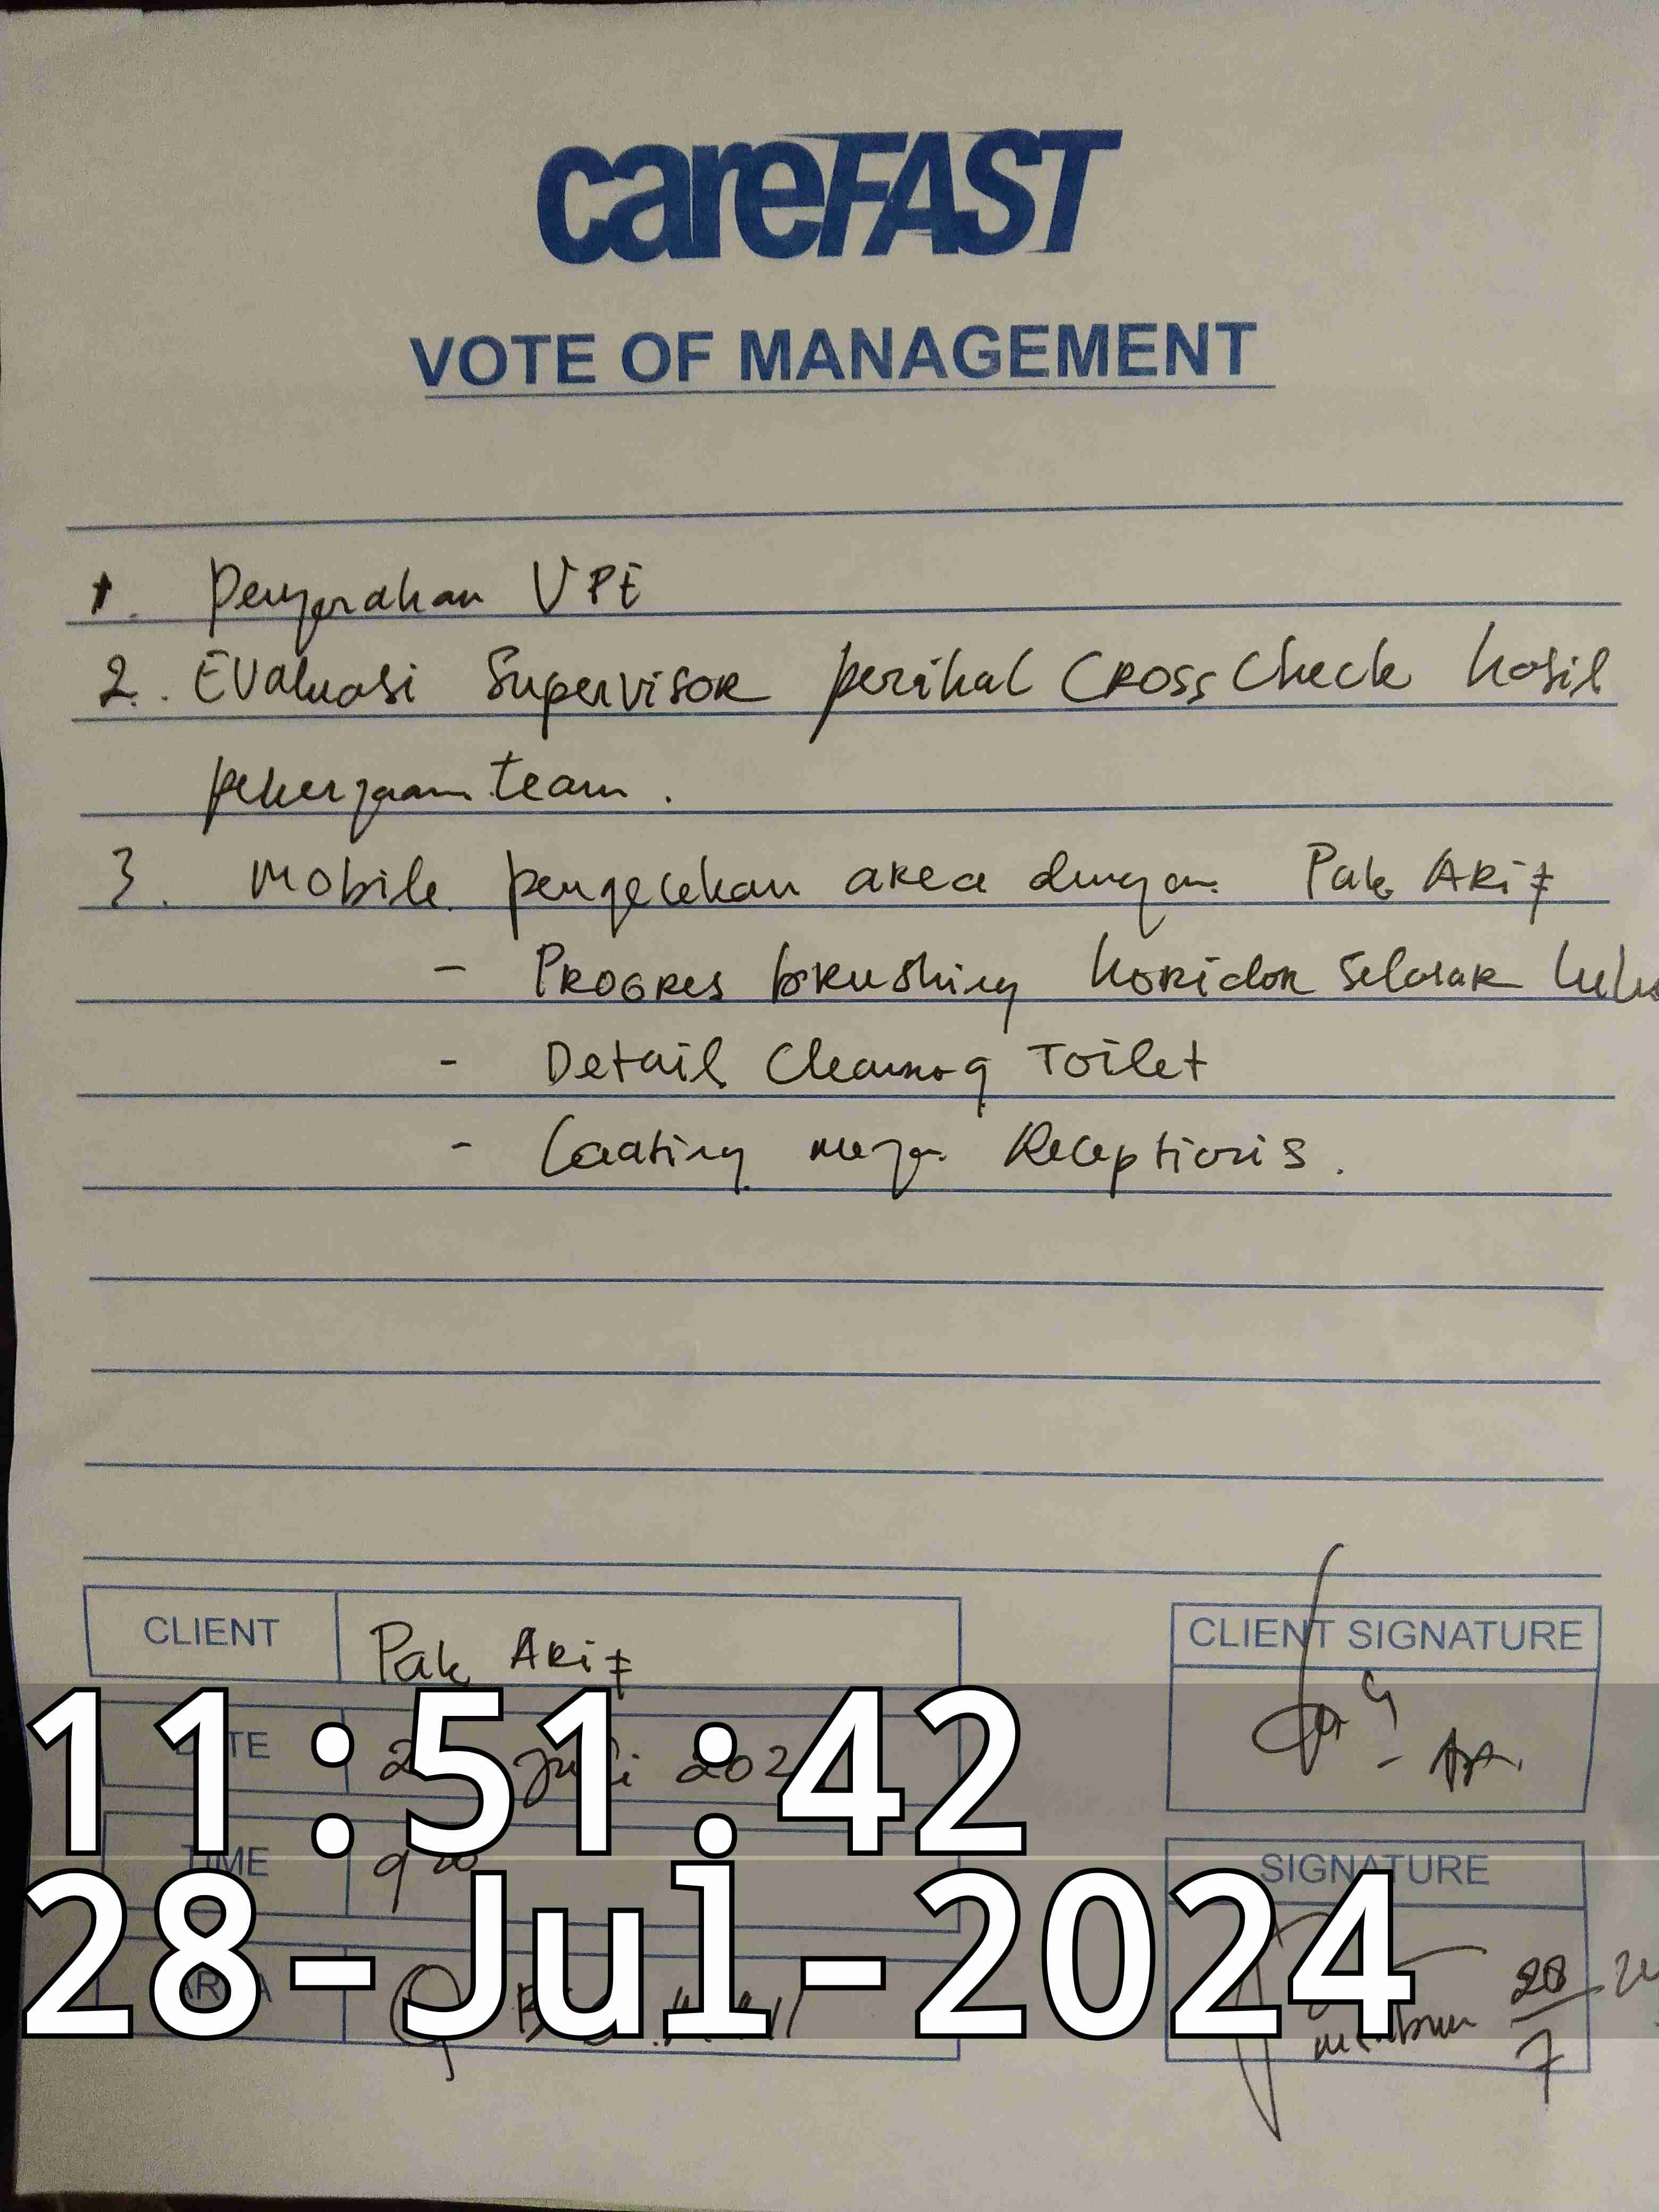 careFAST
VOTE OF MANAGEMENT
1. Penyerahan VPE
2. Evaluasi Supervisor perihal CROSS Check hasil
pekerjaan team.
3. Mobile pengecekan area dengan Pak Arif
- Progres brushing koridor selasar
- Detail Cleaning Toilet
- Coating meja Receptionis.
CLIENT Pak Arif
CLIENT SIGNATURE
11:51:42
Juli 202
TIME 9
SIGNATURE
28-Jul-2024
28
7